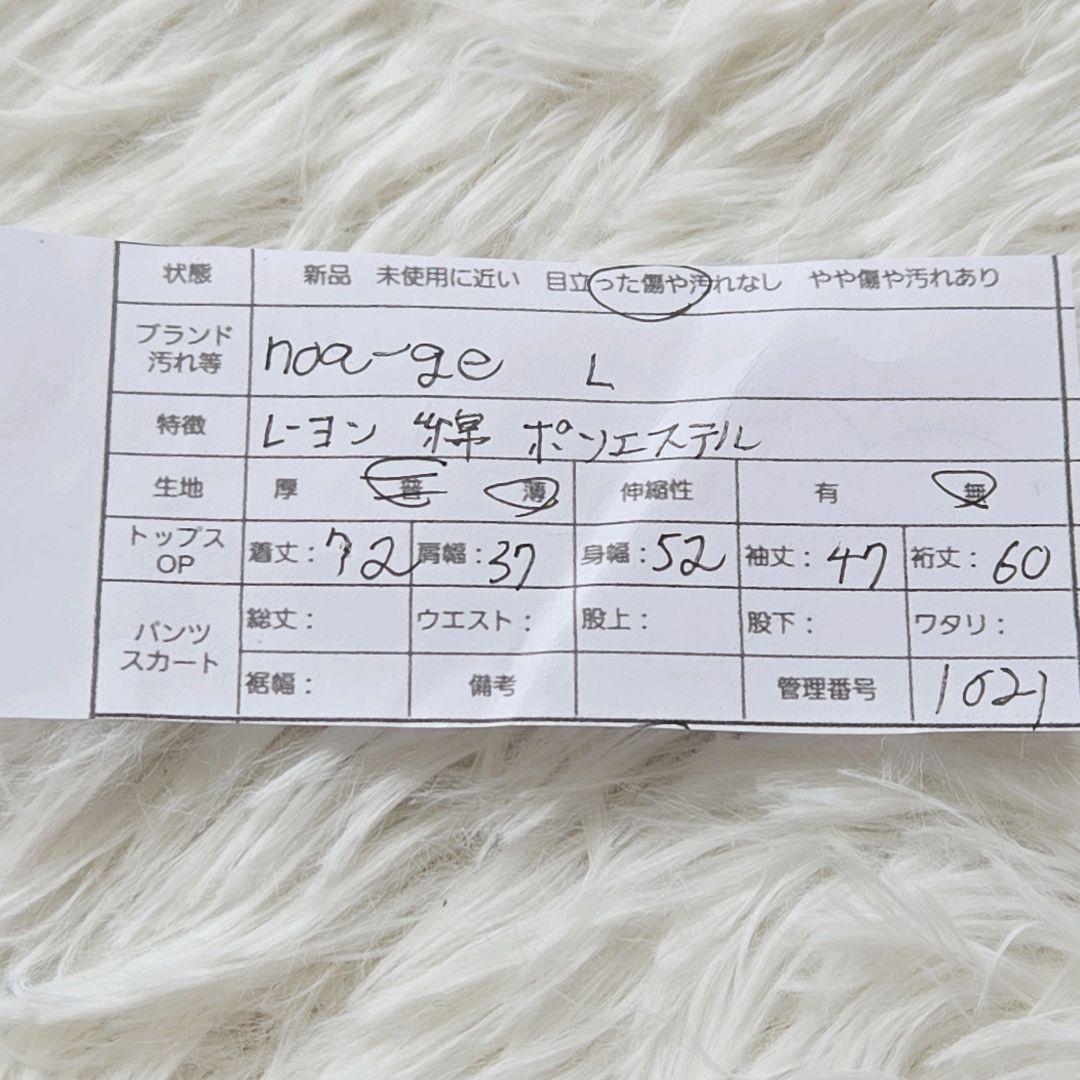 状態 新品 未使用に近い 目立った傷や汚れなし やや傷や汚れあり
ブランド
汚れ等 noa-ge L
特徴 レーヨン 綿 ポリエステル
生地 厚 普 薄 伸縮性 有 無
トップス
OP 着丈:72 肩幅:37 身幅:52 袖丈:47 裄丈:60
パンツ
スカート 総丈: ウエスト: 股上: 股下: ワタリ:
裾幅: 備考 管理番号 1021